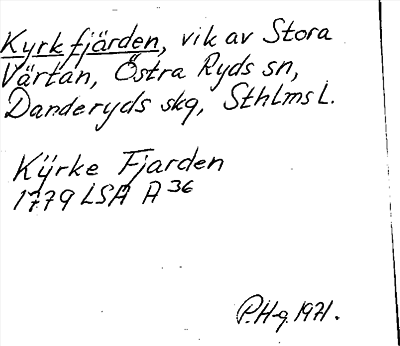 Kyrkfjärden, vik av Stora
Värtan, Östra Ryds sn,
Danderyds skg, Sthlms l.
Kÿrke Fjarden
1779 LSA A 36
P.H-g. 1971.